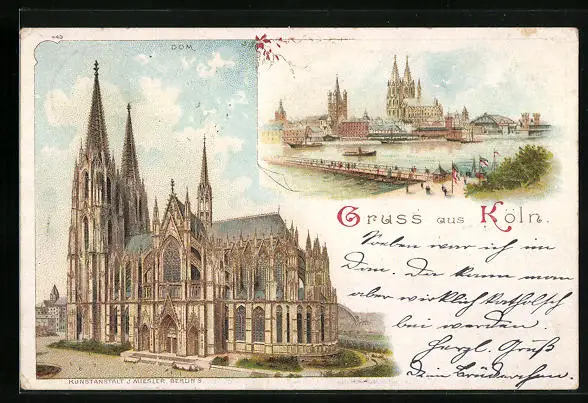 443
DOM.
Gruss aus Köln.
Soeben war ich im
Dom. Da kann man
aber wirklich katholsch
bei werden.
Herzl. Gruß
Dein Brüderchen.
KUNSTANSTALT J. MIESLER, BERLIN S.